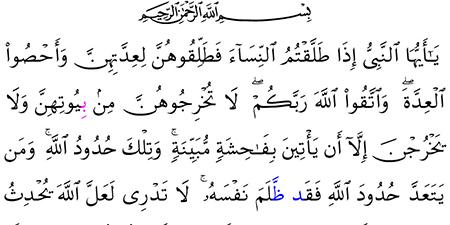 بِسْمِ اللَّهِ الرَّحْمَٰنِ الرَّحِيمِ
يَٰٓأَيُّهَا ٱلنَّبِىُّ إِذَا طَلَّقْتُمُ ٱلنِّسَآءَ فَطَلِّقُوهُنَّ لِعِدَّتِهِنَّ وَأَحْصُوا۟
ٱلْعِدَّةَ ۖ وَٱتَّقُوا۟ ٱللَّهَ رَبَّكُمْ ۖ لَا تُخْرِجُوهُنَّ مِنۢ بِيُوتِهِنَّ وَلَا
يَخْرُجْنَ إِلَّآ أَن يَأْتِينَ بِفَٰحِشَةٍ مُّبَيِّنَةٍ ۚ وَتِلْكَ حُدُودُ ٱللَّهِ ۚ وَمَن
يَتَعَدَّ حُدُودَ ٱللَّهِ فَقَد ظَّلَمَ نَفْسَهُۥ ۚ لَا تَدْرِى لَعَلَّ ٱللَّهَ يُحْدِثُ